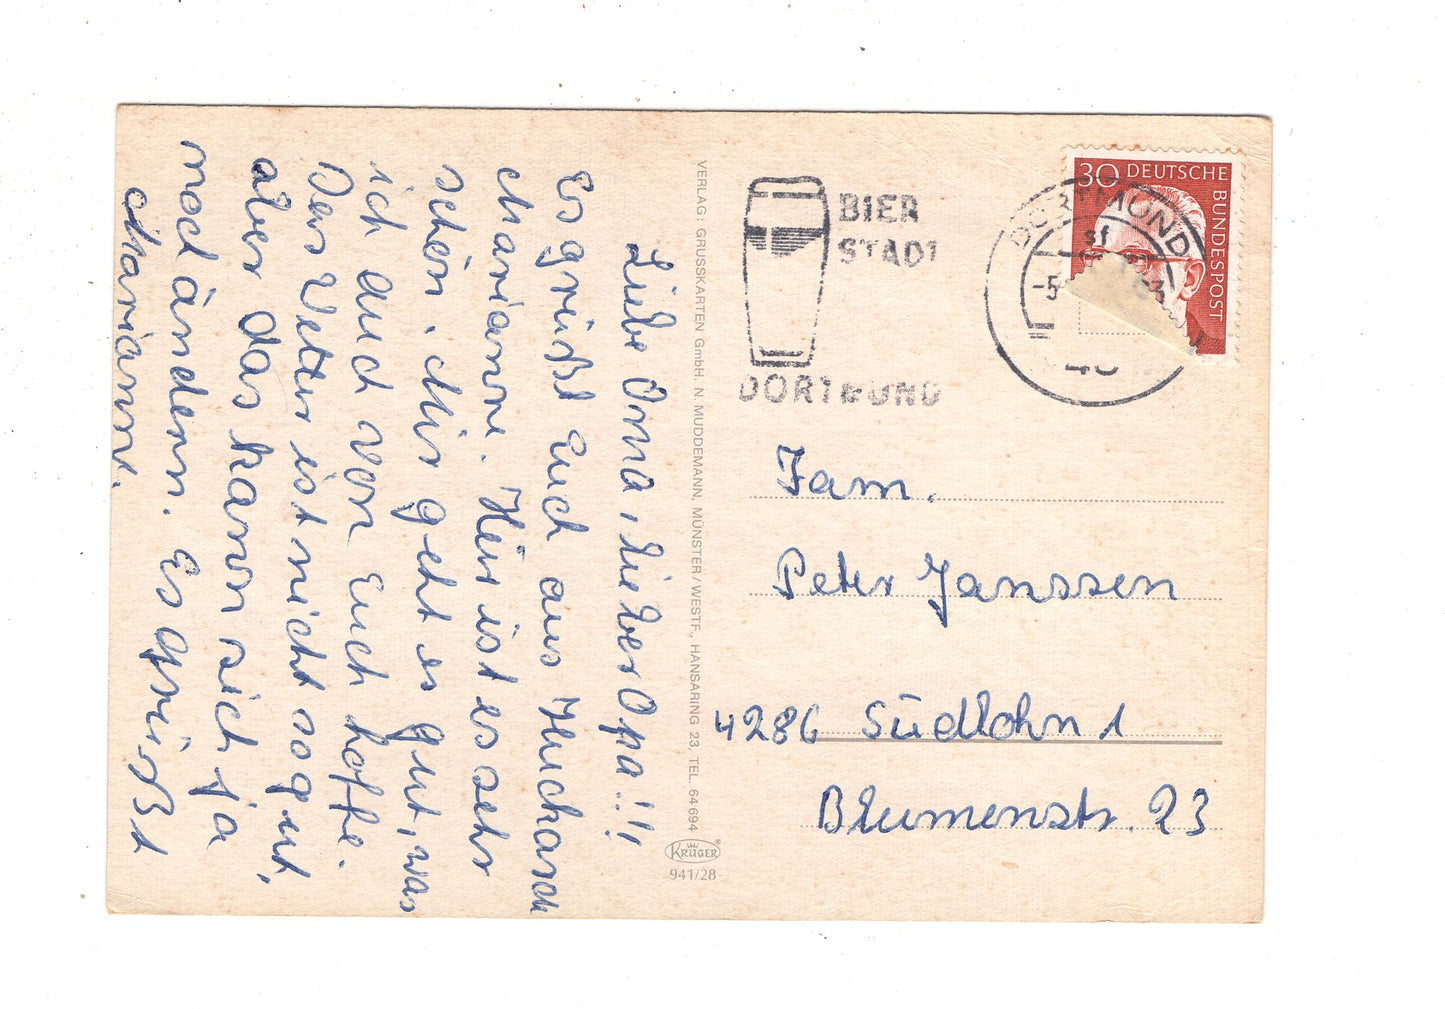 Liebe Oma, lieber Opa!!!
Es grüßt Euch aus Huckarde
Marianne. Hier ist es sehr
schön. Mir geht es gut, was
ich auch von Euch hoffe.
Das Wetter ist nicht so gut,
aber das kann sich ja
noch ändern. Es grüßt
Marianne.
VERLAG: GRUSSKARTEN GmbH. N. MUDDEMANN, MÜNSTER/WESTF., HANSARING 23, TEL. 64694
KRÜGER
941/28
BIER
STADT
DORTMUND
30 DEUTSCHE
BUNDESPOST
DORTMUND
sf
-5.
Fam.
Peter Janssen
4286 Südlohn 1
Blumenstr. 23